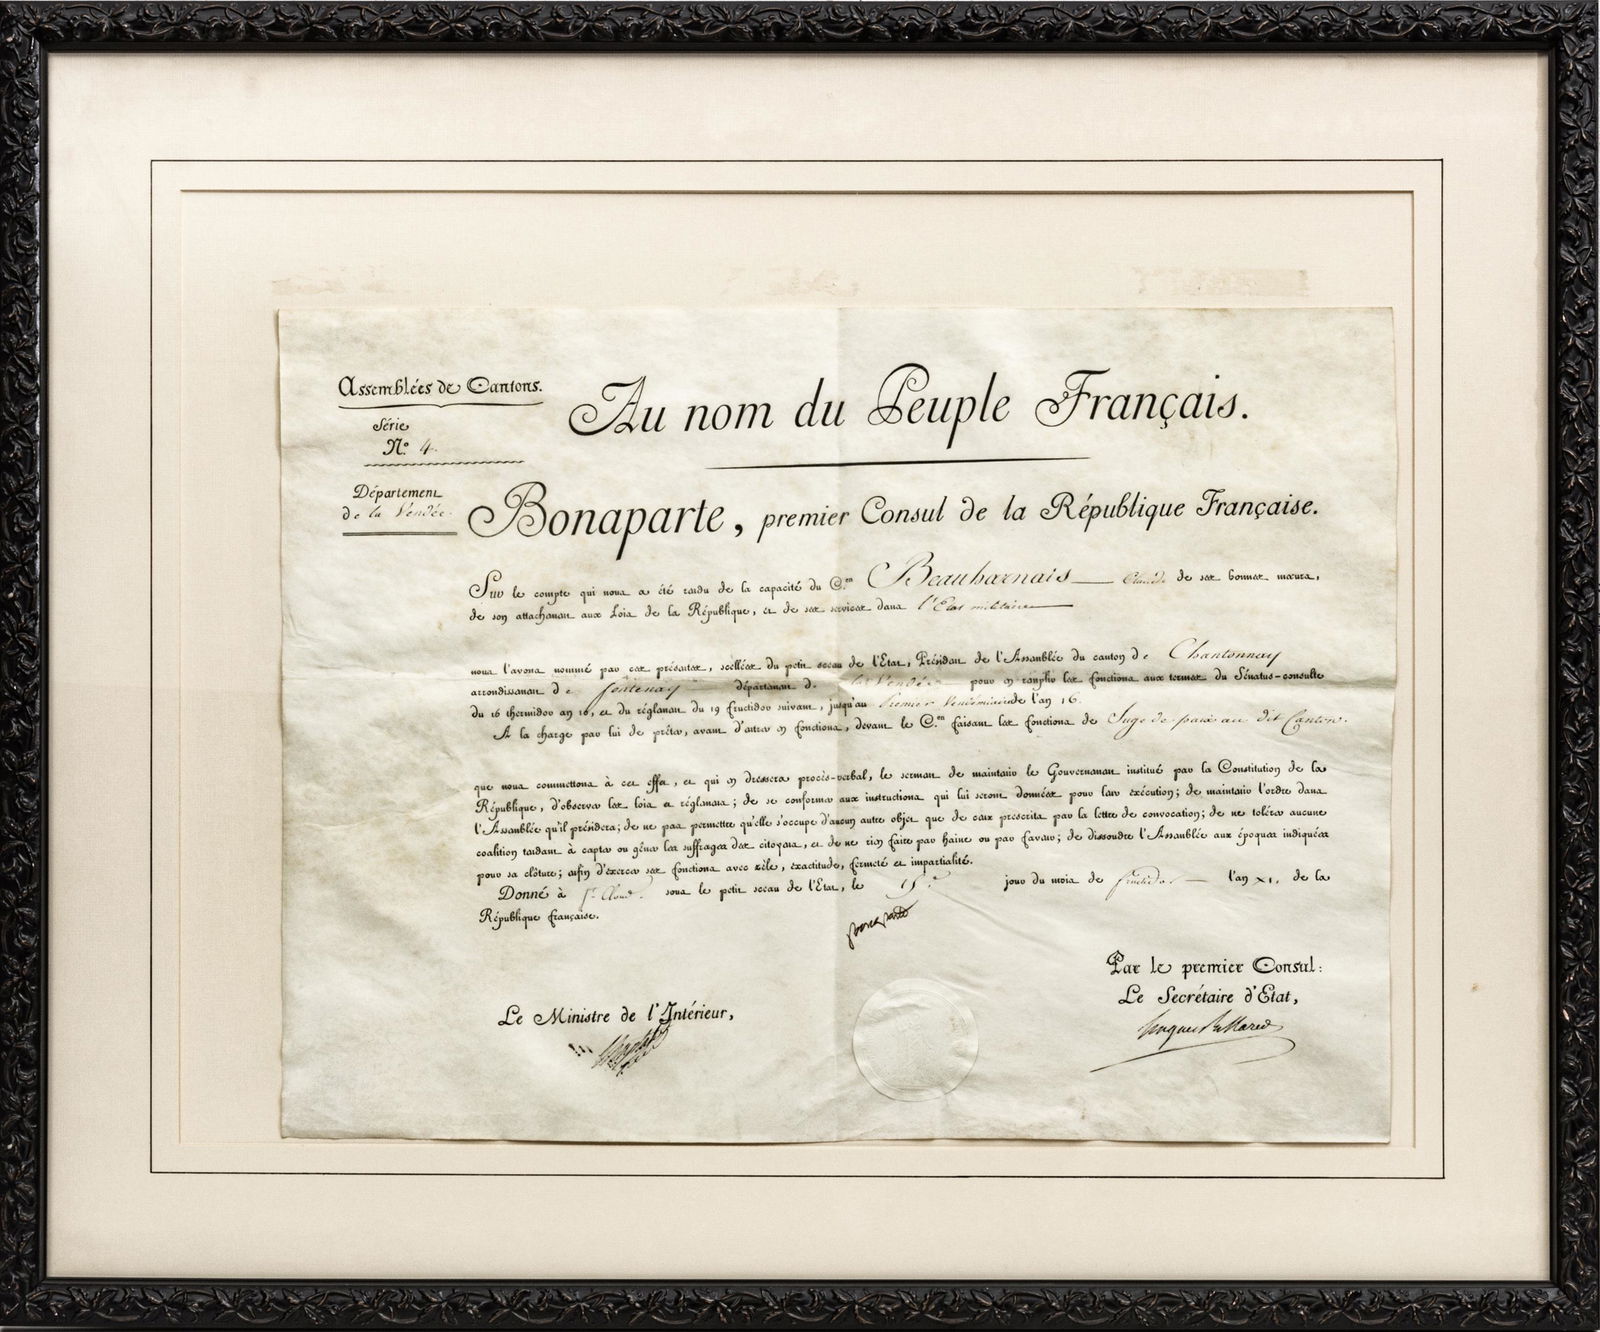 Assemblées de Cantons.
Série
N.º 4.
Département
de la Vendée.
Au nom du Peuple Français.
Bonaparte, premier Consul de la République Française.
Sur le compte qui nous a été rendu de la capacité du C.en Beauharnais Claude de ses bonnes mœurs,
de son attachement aux Lois de la République, et de ses services dans l'Etat militaire
nous l'avons nommé par ces présentes, scellées du petit sceau de l'Etat, Président de l'Assemblée du canton de Chantonnay
arrondissement de fontenay département de la Vendée pour en remplir les fonctions aux termes du Sénatus-consulte
du 16 thermidor an 10, et du réglement du 19 fructidor suivant, jusqu'au Premier Vendémiaire de l'an 16.
A la charge par lui de prêter, avant d'entrer en fonctions, devant le C.en faisant les fonctions de Juge de paix au dit Canton.
que nous commettons à cet effet, et qui en dressera procès-verbal, le serment de maintenir le Gouvernement institué par la Constitution de la
République, d'observer les lois et réglemens; de se conformer aux instructions qui lui seront données pour leur exécution; de maintenir l'ordre dans
l'Assemblée qu'il présidera; de ne pas permettre qu'elle s'occupe d'aucun autre objet que de ceux prescrits par la lettre de convocation; de ne tolérer aucune
coalition tendant à capter ou gêner les suffrages des citoyens, et de ne rien faire par haine ou par faveur; de dissoudre l'Assemblée aux époques indiquées
pour sa clôture; enfin d'exercer ses fonctions avec zèle, exactitude, fermeté et impartialité.
Donné à St Cloud sous le petit sceau de l'Etat, le 15e jour du mois de fructidor l'an XI. de la
République française.
Bonaparte
Par le premier Consul:
Le Secrétaire d'Etat,
Hugues B. Maret
Le Ministre de l'Intérieur,